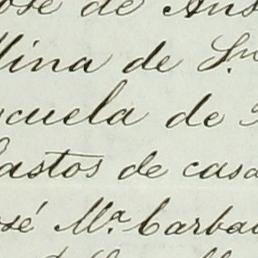 José de Ans
Mina de Sn
scuela de
Gastos de casa
José Ma. Carba